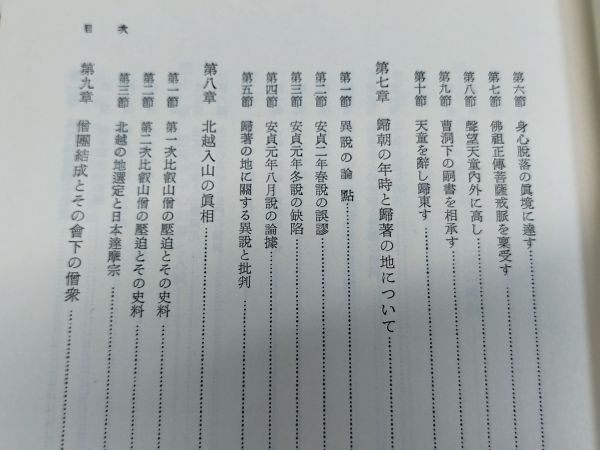 第六節 身心脫落の眞境に達す
第七節 佛祖正傳菩薩戒脈を稟受す
第八節 聲望天童內外に高し
第九節 曹洞下の嗣書を相承す
第十節 天童を辭し歸東す
第七章 歸朝の年時と歸著の地について
第一節 異說の論點
第二節 安貞二年春說の誤謬
第三節 安貞元年冬說の缺陷
第四節 安貞元年八月說の論據
第五節 歸著の地に關する異說と批判
第八章 北越入山の眞相
第一節 第一次比叡山僧の壓迫とその史料
第二節 第二次比叡山僧の壓迫とその史料
第三節 北越の地選定と日本達摩宗
第九章 僧團結成とその會下の僧衆
目次